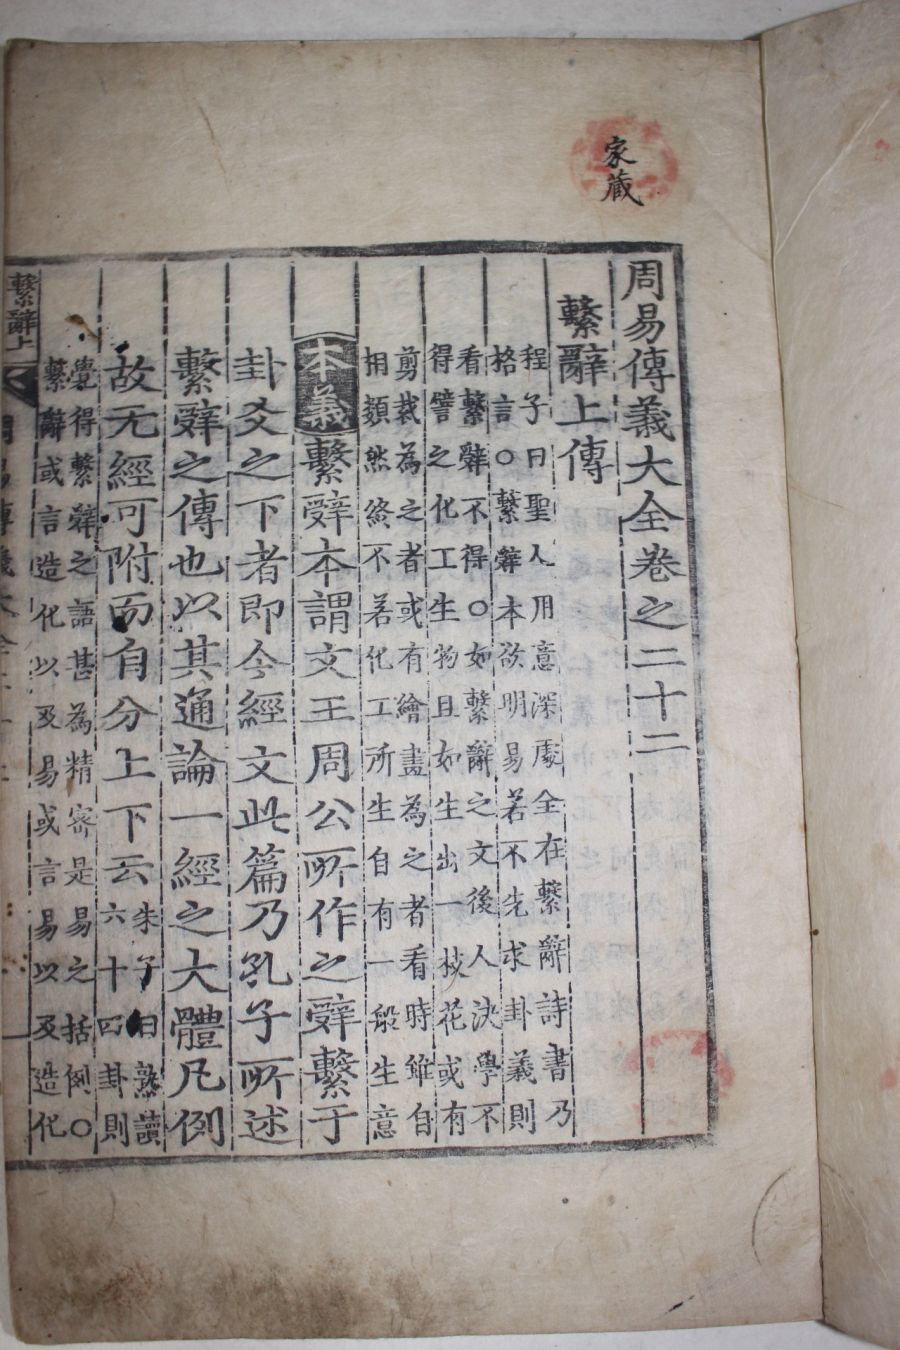 家藏
周易傳義大全卷之二十二
繫辭上傳
程子曰聖人用意深處全在繫辭詩書乃
格言○繫辭本欲明易若不先求卦義則
看繫辭不得○如繫辭之文後人決學不
得譬之化工生物且如生出一枝花或有
剪裁為之者或有繪畫為之者看時雖自
相類然終不若化工所生自有一般生意
本義繫辭本謂文王周公所作之辭繫于
卦爻之下者即今經文此篇乃孔子所述
繫辭之傳也以其通論一經之大體凡例
故无經可附而自分上下云朱子曰熟讀
六十四卦則
覺得繫辭之語甚為精密是易之括例○
繫辭或言造化以及易或言易以及造化
繫辭上